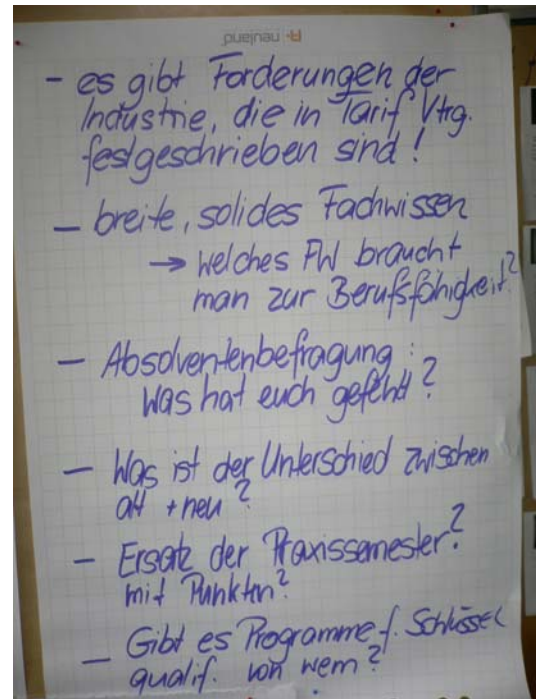 neuland
- es gibt Forderungen der
Industrie, die in Tarif Vtrg.
festgeschrieben sind!
- breite, solides Fachwissen
→ welches FW braucht
man zur Berufsfähigkeit?
- Absolventenbefragung:
Was hat euch gefehlt?
- Was ist der Unterschied zwischen
alt + neu?
- Ersatz der Praxissemester?
mit Punkten?
- Gibt es Programme f. Schlüssel
qualif. von wem?